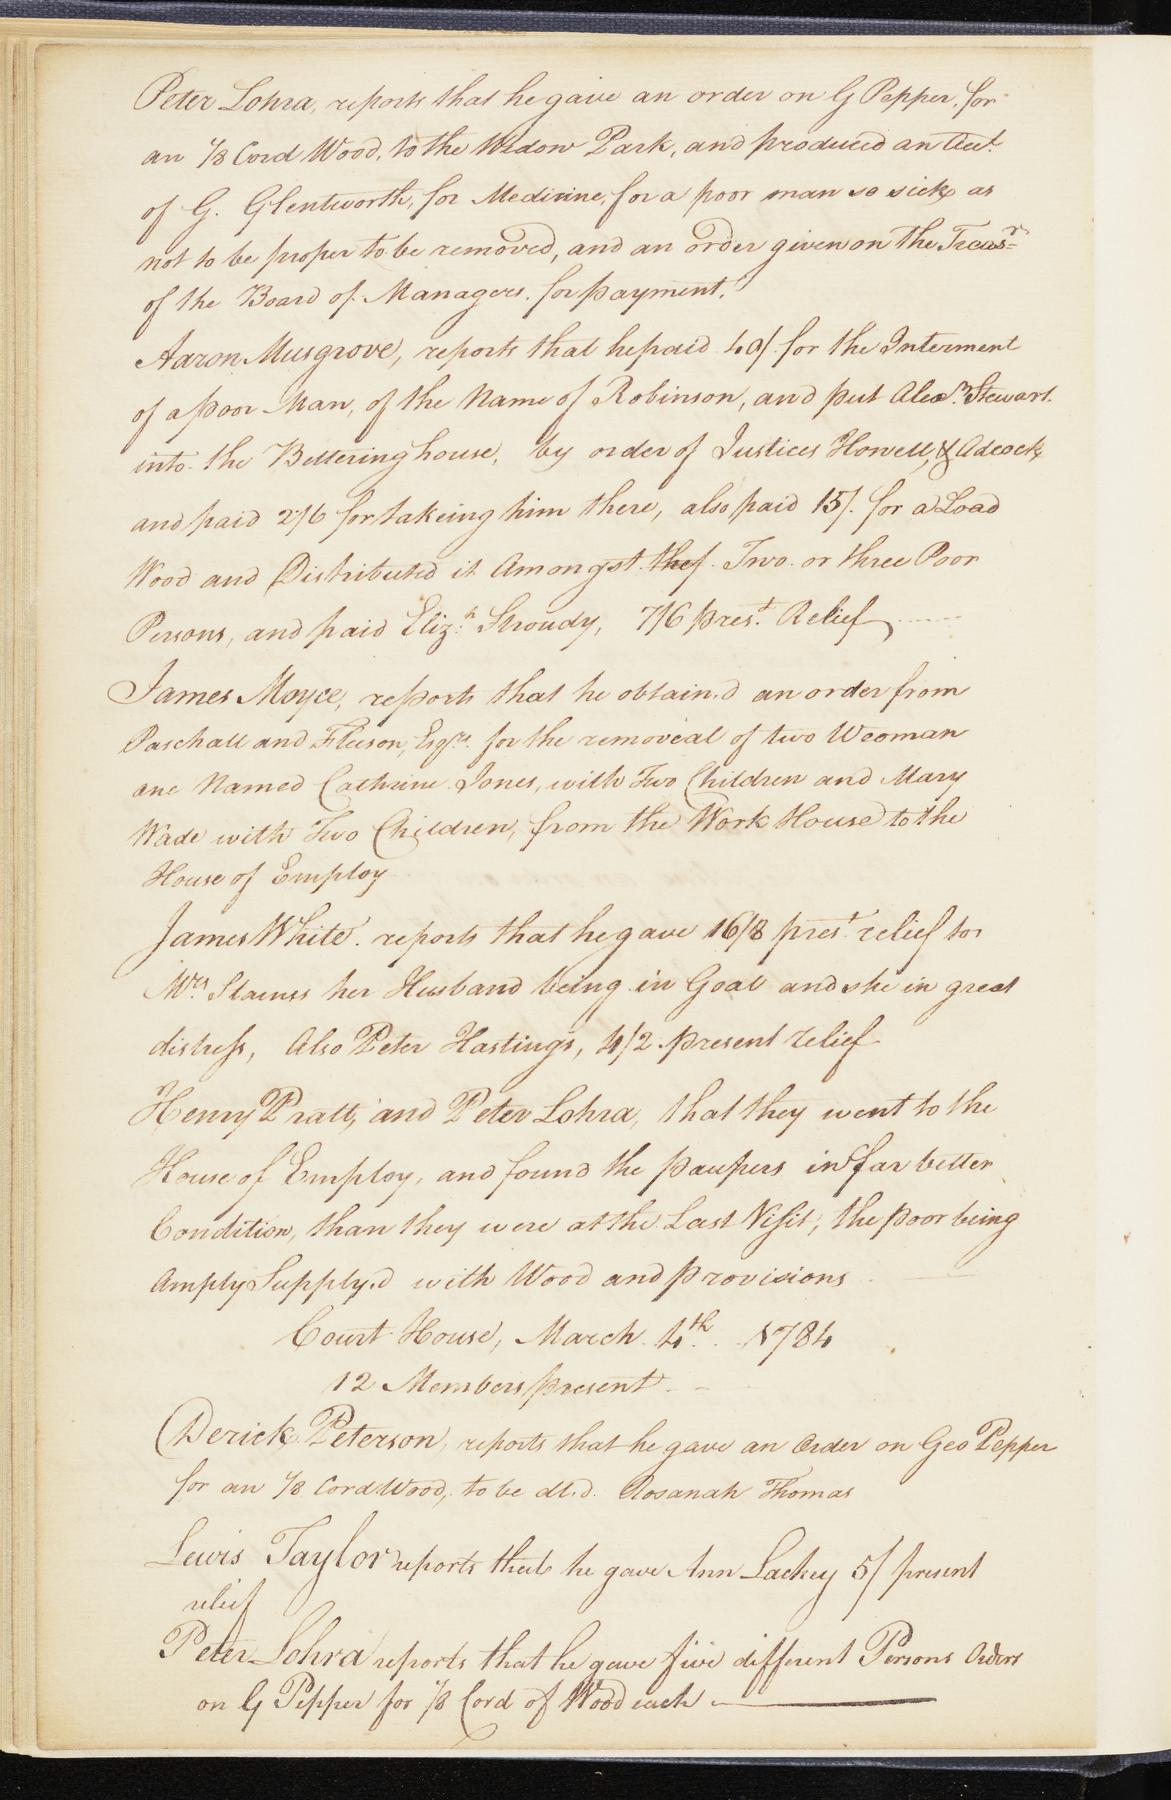 Peter Lohra, reports that he gave an order on G Pepper, for
an 1/8 Cord Wood, to the Widow Park, and produced an Acct.
of G. Glentworth, for Medicine, for a poor man so sick as
not to be proper to be removed, and an order given on the Treasr
of the Board of Managers. for payment.
Aaron Musgrove, reports that he paid 40/ for the Interment
of a poor Man, of the Name of Robinson, and put Alexr. Stewart.
into the Bettering house, by order of Justices Howell, & Adcock
and paid 2/6 for takeing him there, also paid 15/. for a Load
Wood and Distributed it Amongst Two or three Poor
Persons, and paid Eliz.h Stroudy, 7/6 prest. Relief
James Moyce, reports that he obtain.d an order from
Paschall and Esqrs. for the removeal of two Weoman
one Named Cathrine Jones, with Two Children and Mary
Wade with Two Children, from the Work House to the
House of Employ
James White. reports that he gave 16/8 prest. relief to
Mrs. her Husband being in Goal and she in great
distress, Also Peter Hastings, 4/2 present relief
Henry Pratt, and Peter Lohra, that they went to the
House of Employ, and found the paupers in far better
Condition, than they were at the Last Visit, the poor being
Amply Supply.d with Wood and provisions
Court House, March 4th. 1784
12 Members present
Derick Peterson, reports that he gave an Order on Geo Pepper
for an 1/8 Cord Wood, to be dld. Rosanah Thomas
Lewis Taylor reports that he gave Ann Lackey 5/ present
relief
Peter Lohra reports that he gave five different Persons Orders
on G Pepper for 1/8 Cord of Wood each